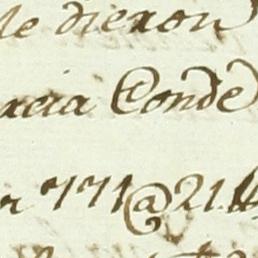 le dieron
rcia Conde
r 771@21 lb